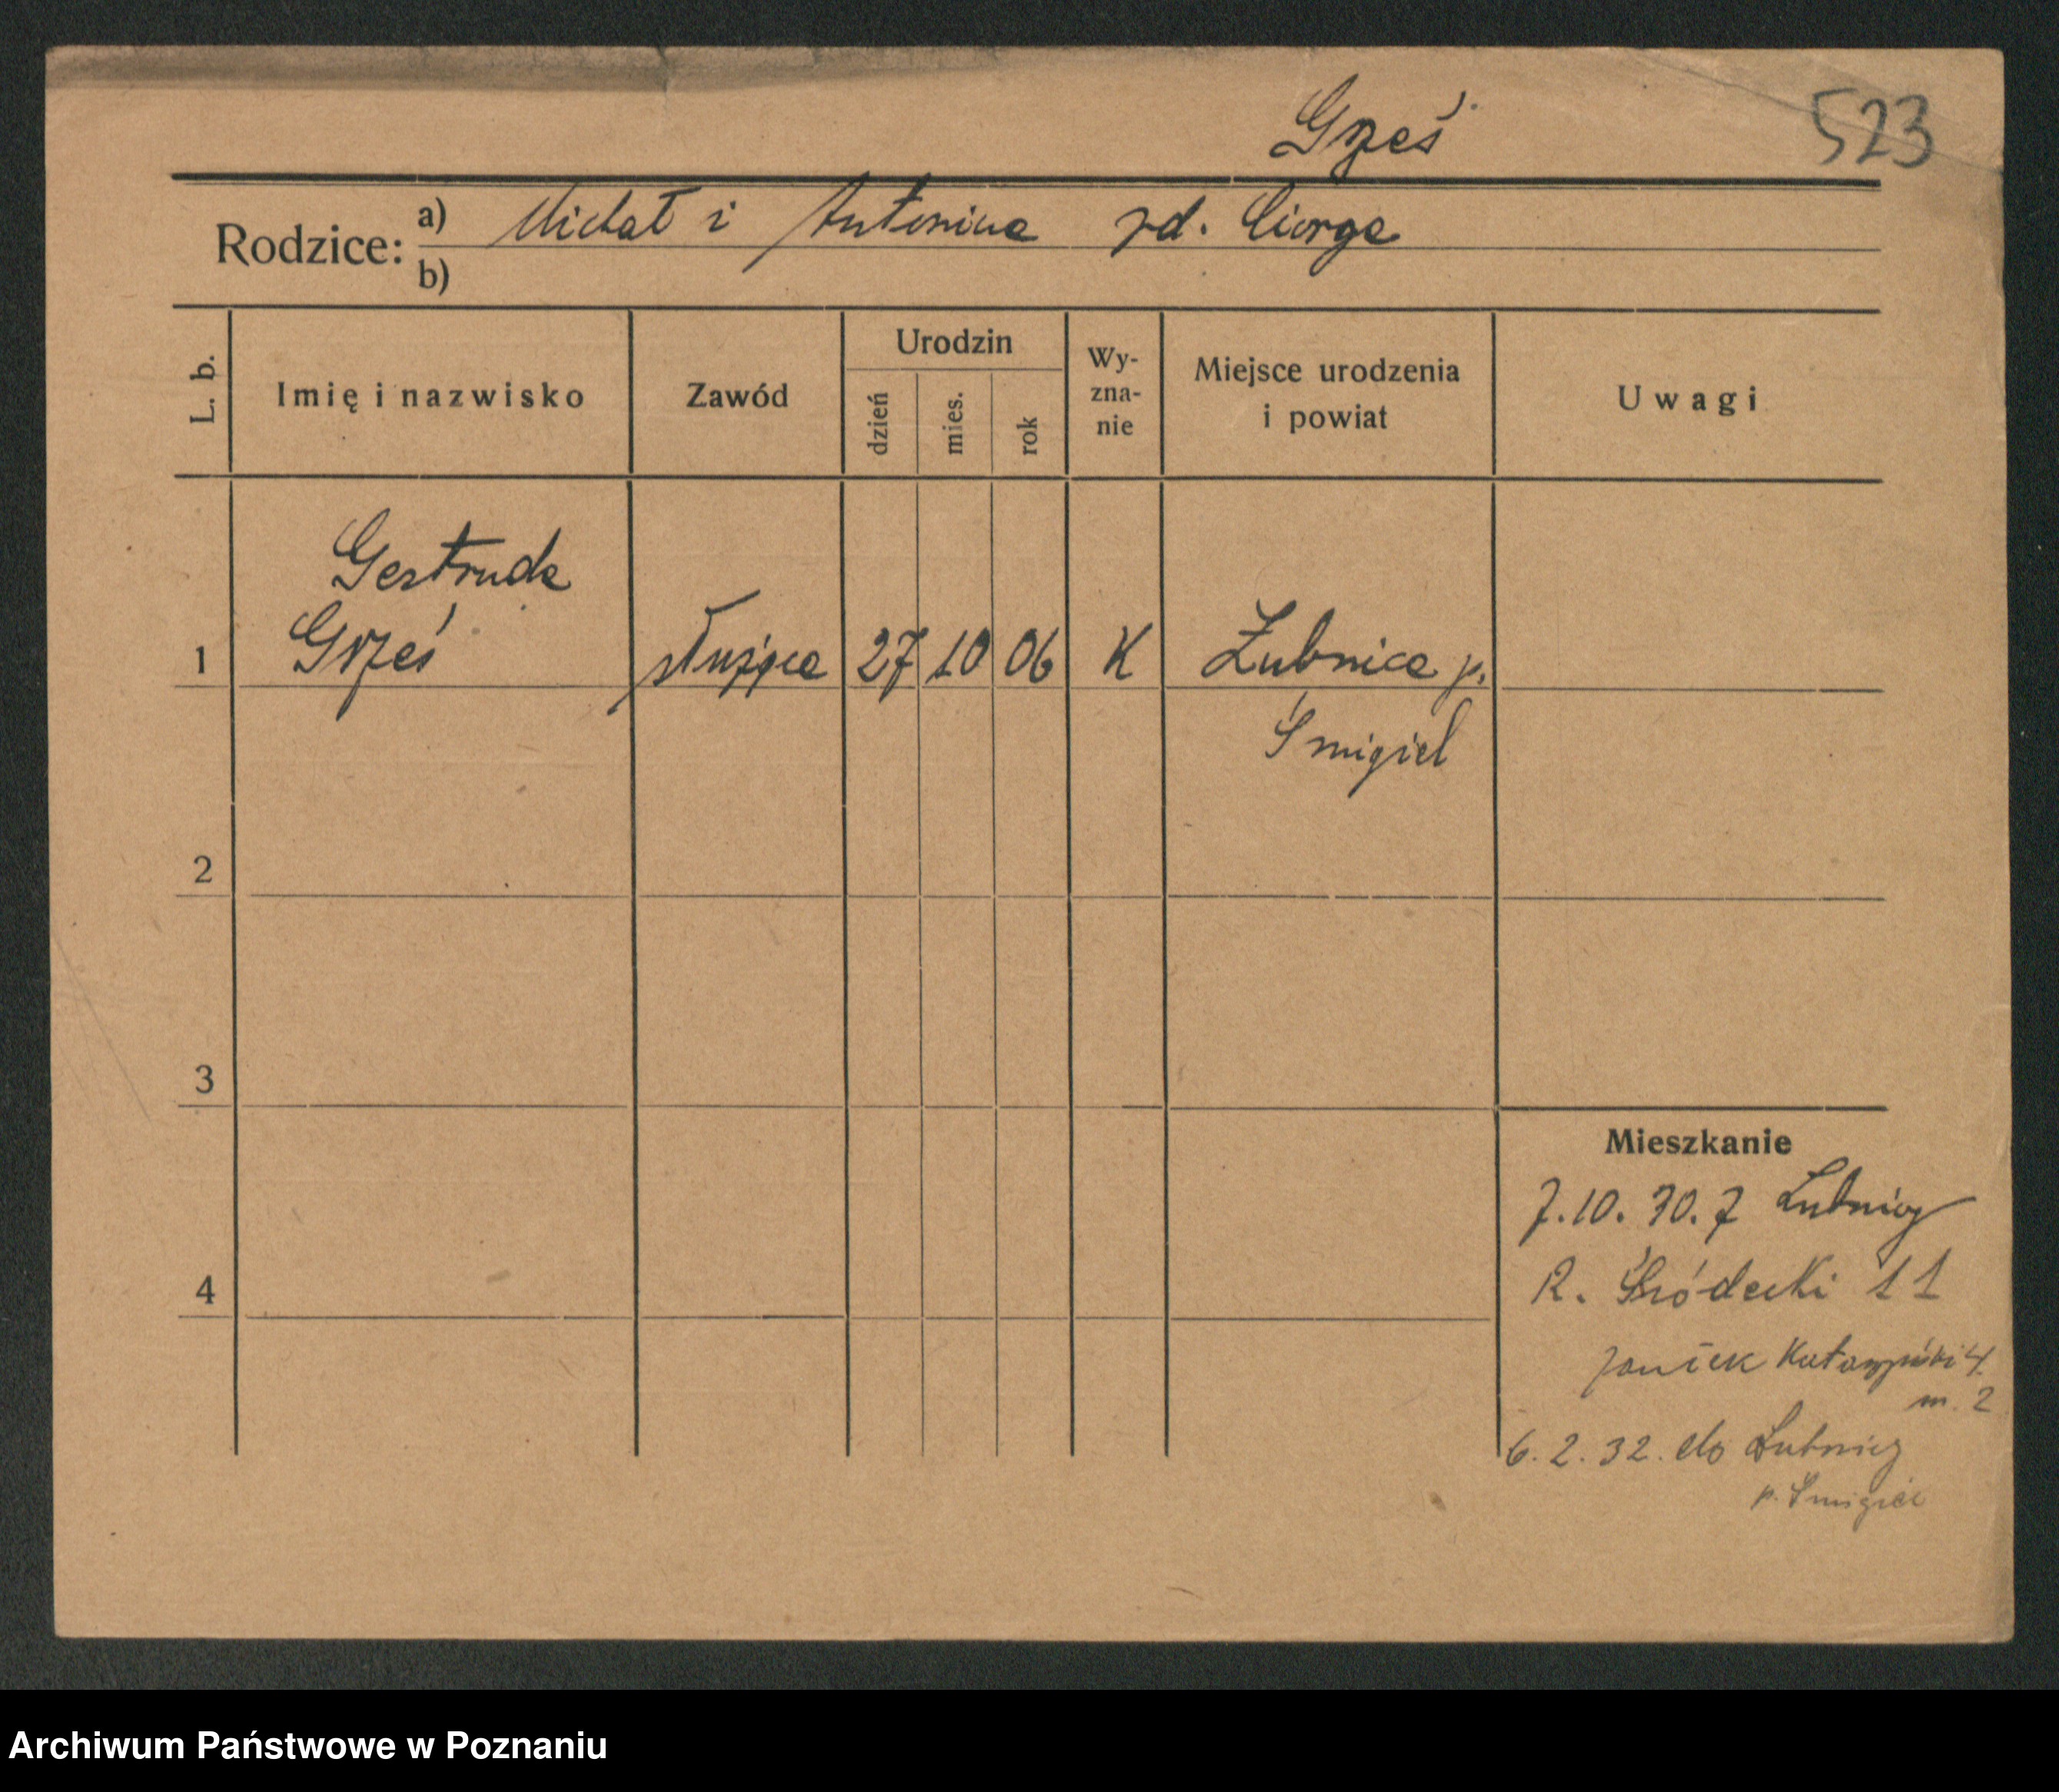 Grześ
523
Rodzice: a) Michał i Antonina zd. Ciorga
b)
L. b.
Imię i nazwisko
Zawód
Urodzin
dzień
mies.
rok
Wy-
zna-
nie
Miejsce urodzenia
i powiat
Uwagi
Gertruda
1 Grześ służąca 27 10 06 K Łubnica p.
Śmigiel
2
3
4
Mieszkanie
7.10.30. z Łubnicy
R. Śródecki 11
4
m. 2
6.2.32. do Łubnicy
p. Śmigiel
Archiwum Państwowe w Poznaniu